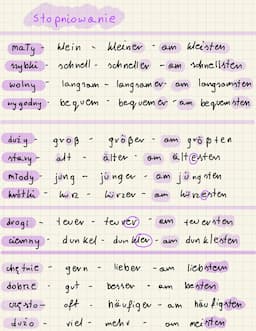 Stopniowanie
mały - klein - kleiner - am kleisten
szybki - schnell - schneller - am schnellsten
wolny - langsam - langsamer - am langsamsten
wygodny - bequem - bequemer - am bequemsten
duży - groß - größer - am größten
stary - alt - älter - am ältesten
młody - jung - jünger - am jüngsten
krótki - kurz - kürzer - am kürzesten
drogi - teuer - teurer - am teuersten
ciemny - dunkel - dunkler - am dunklesten
chętnie - gern - lieber - am liebsten
dobrze - gut - besser - am besten
często - oft - häufiger - am häufigsten
dużo - viel - mehr - am meisten